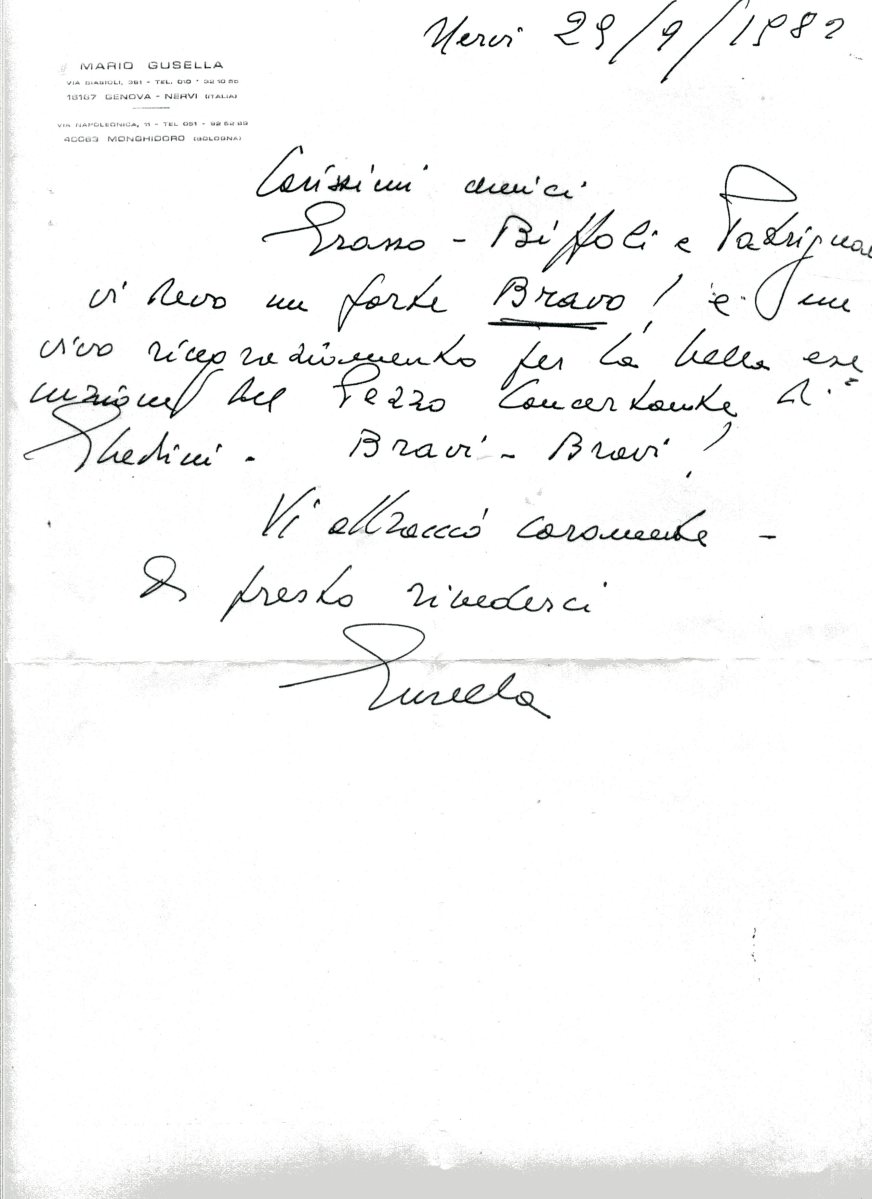 Nervi 29/9/1982
MARIO GUSELLA
VIA BIAGIOLI, 381 - TEL. 010 - 32 10 56
16167 GENOVA - NERVI (ITALIA)
VIA NAPOLEONICA, 11 - TEL 051 - 92 52 89
40063 MONGHIDORO (BOLOGNA)
Carissimi amici
Grasso - Biffoli e Padrignan
vi devo un forte Bravo! e un
vivo ringraziamento per la bella ese
cuzione del Pezzo Concertante di
Ghedini - Bravi - Bravi!
Vi abbraccio caramente -
A presto rivederci
Gusella